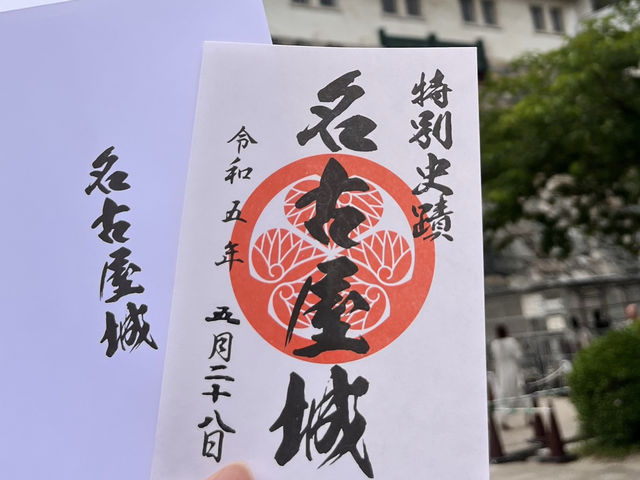 特別史蹟
名古屋城
令和五年 五月二十八日
名古屋城